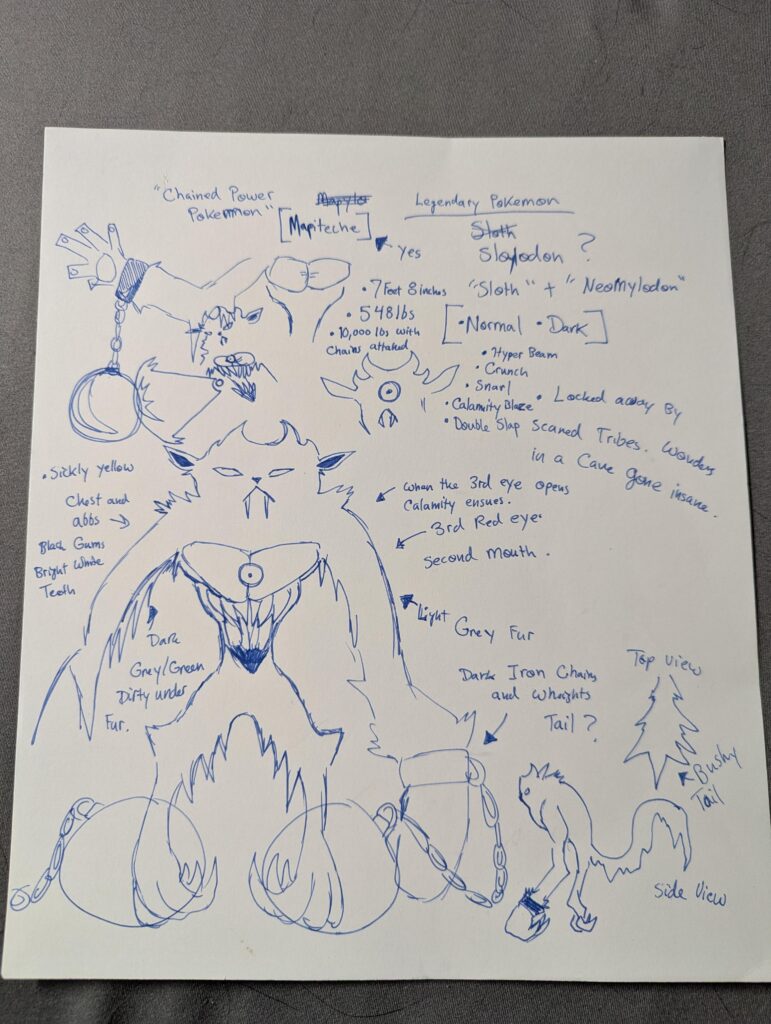 "Chained Power
Pokemon"
[Mapiteche]
Yes
Legendary Pokemon
Sloth
Sloylodon ?
"Sloth" + "NeoMylodon"
[•Normal •Dark]
• 7 Foot 8 inches
• 548 lbs
• 10,000 lbs with
Chains attatced
• Hyper Beam
• Crunch
• Snarl
• Calamity Blaze
• Double Slap
• Locked away By
Scared Tribes. Wonders
in a Cave gone insane.
• Sickly yellow
Chest and
abbs
Black Gums
Bright White
Teeth
when the 3rd eye opens
Calamity ensues.
3rd Red eye.
Second mouth.
Light
Grey Fur
Dark
Grey/Green
Dirty under
Fur.
Dark Iron Chains
and Wheights
Tail ?
Top View
Bushy
Tail
Side View